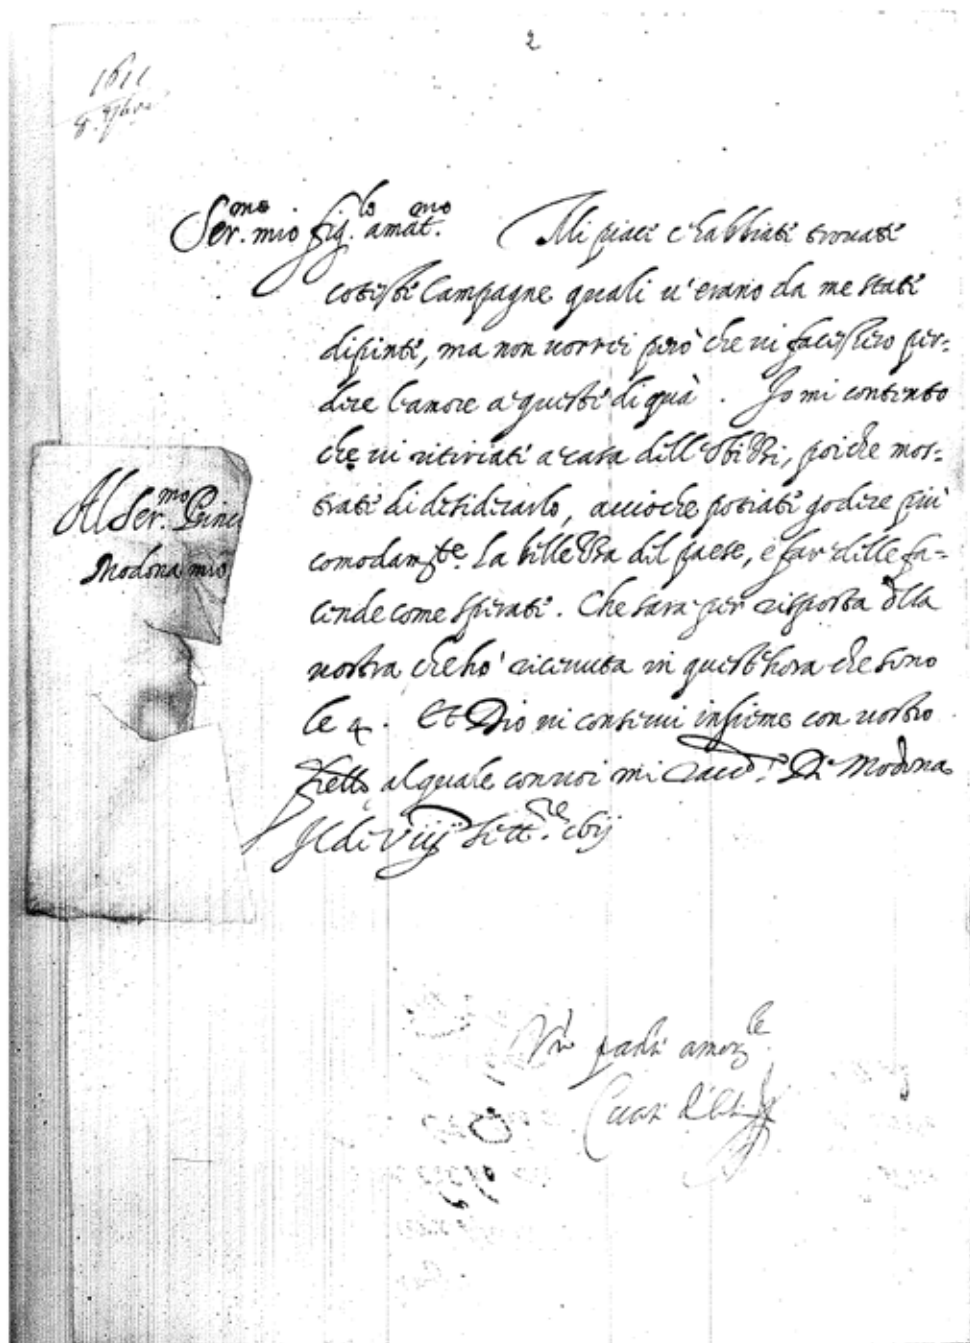 2
1611
8. 7bre
Ser.mo mio fig.lo amat.mo Mi piace c'habbiate trovate
coteste Campagne quali v'erano da me state
dipinte, ma non vorrei però che vi facessero per-
dere l'amore a queste di quà. Io mi contento
che vi ritiriate a casa dell' , poiche mos-
trate di desiderarlo, accioche potiate godere più
comodam.te La bellezza del paese, e far delle fa-
cende come sperate. Che sara per risposta della
vostra che ho' ricevuta in quest'hora che sono
le 4. Et Dio vi conservi insieme con vostro
al quale con voi mi Di Modona
Il di viij Sett.re
Al Ser.mo Princ
Modona mio
Vro padre amor.le
Cesare d'Este